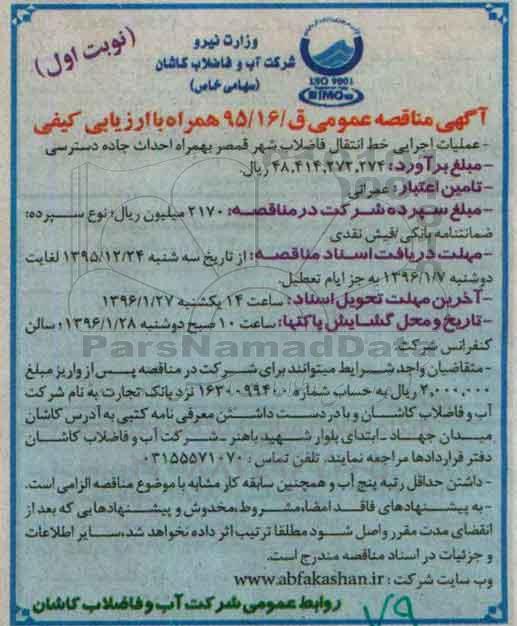 (نوبت اول)
وزارت نیرو
شرکت آب و فاضلاب کاشان
(سهامی خاص)
ISO 9001
SIMCert
آگهی مناقصه عمومی ق/۹۵/۱۶ همراه با ارزیابی کیفی
- عملیات اجرایی خط انتقال فاضلاب شهر قمصر بهمراه احداث جاده دسترسی
- مبلغ برآورد: ۴۸,۴۱۴,۲۷۲,۲۷۴ ریال.
- تامین اعتبار: عمرانی
- مبلغ سپرده شرکت در مناقصه: ۲۱۷۰ میلیون ریال؛ نوع سپرده:
ضمانتنامه بانکی/فیش نقدی
- مهلت دریافت اسناد مناقصه: از تاریخ سه شنبه ۱۳۹۵/۱۲/۲۴ لغایت
دوشنبه ۱۳۹۶/۱/۷ به جز ایام تعطیل.
- آخرین مهلت تحویل اسناد: ساعت ۱۴ یکشنبه ۱۳۹۶/۱/۲۷
- تاریخ و محل گشایش پاکتها: ساعت ۱۰ صبح دوشنبه ۱۳۹۶/۱/۲۸؛ سالن
کنفرانس شرکت
- متقاضیان واجد شرایط میتوانند برای شرکت در مناقصه پس از واریز مبلغ
۲,۰۰۰,۰۰۰ ریال به حساب شماره نزد بانک تجارت به نام شرکت
آب و فاضلاب کاشان و با در دست داشتن معرفی نامه کتبی به آدرس کاشان
میدان جهاد - ابتدای بلوار شهید باهنر - شرکت آب و فاضلاب کاشان
دفتر قراردادها مراجعه نمایند. تلفن تماس: ۰۳۱۵۵۵۷۱۰۷۰
- داشتن حداقل رتبه پنج آب و همچنین سابقه کار مشابه با موضوع مناقصه الزامی است.
- به پیشنهادهای فاقد امضاء، مشروط، مخدوش و پیشنهادهایی که بعد از
انقضای مدت مقرر واصل شود مطلقا ترتیب اثر داده نخواهد شد، سایر اطلاعات
و جزئیات در اسناد مناقصه مندرج است.
وب سایت شرکت: www.abfakashan.ir
روابط عمومی شرکت آب و فاضلاب کاشان
۷۹
ParsNamadData